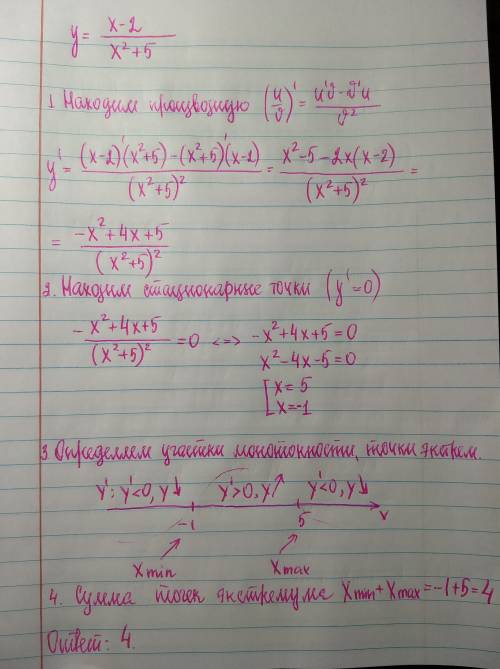 y = (x-2)/(x²+5)
1. Находим производную (u/v)' = (u'v - v'u)/v²
y' = ((x-2)'(x²+5) - (x²+5)'(x-2))/(x²+5)² = (x²-5-2x(x-2))/(x²+5)² =
= (-x²+4x+5)/(x²+5)²
2. Находим стационарные точки (y'=0)
(-x²+4x+5)/(x²+5)² = 0 <=> -x²+4x+5=0
x²-4x-5=0
[x=5
x=-1
3 Определяем участки монотонности, точки экстрем.
y': y'<0, y↘ y'>0, y↗ y'<0, y↘
-1 5 x
Xmin Xmax
4. Сумма точек экстремума Xmin+Xmax=-1+5=4
Ответ: 4.